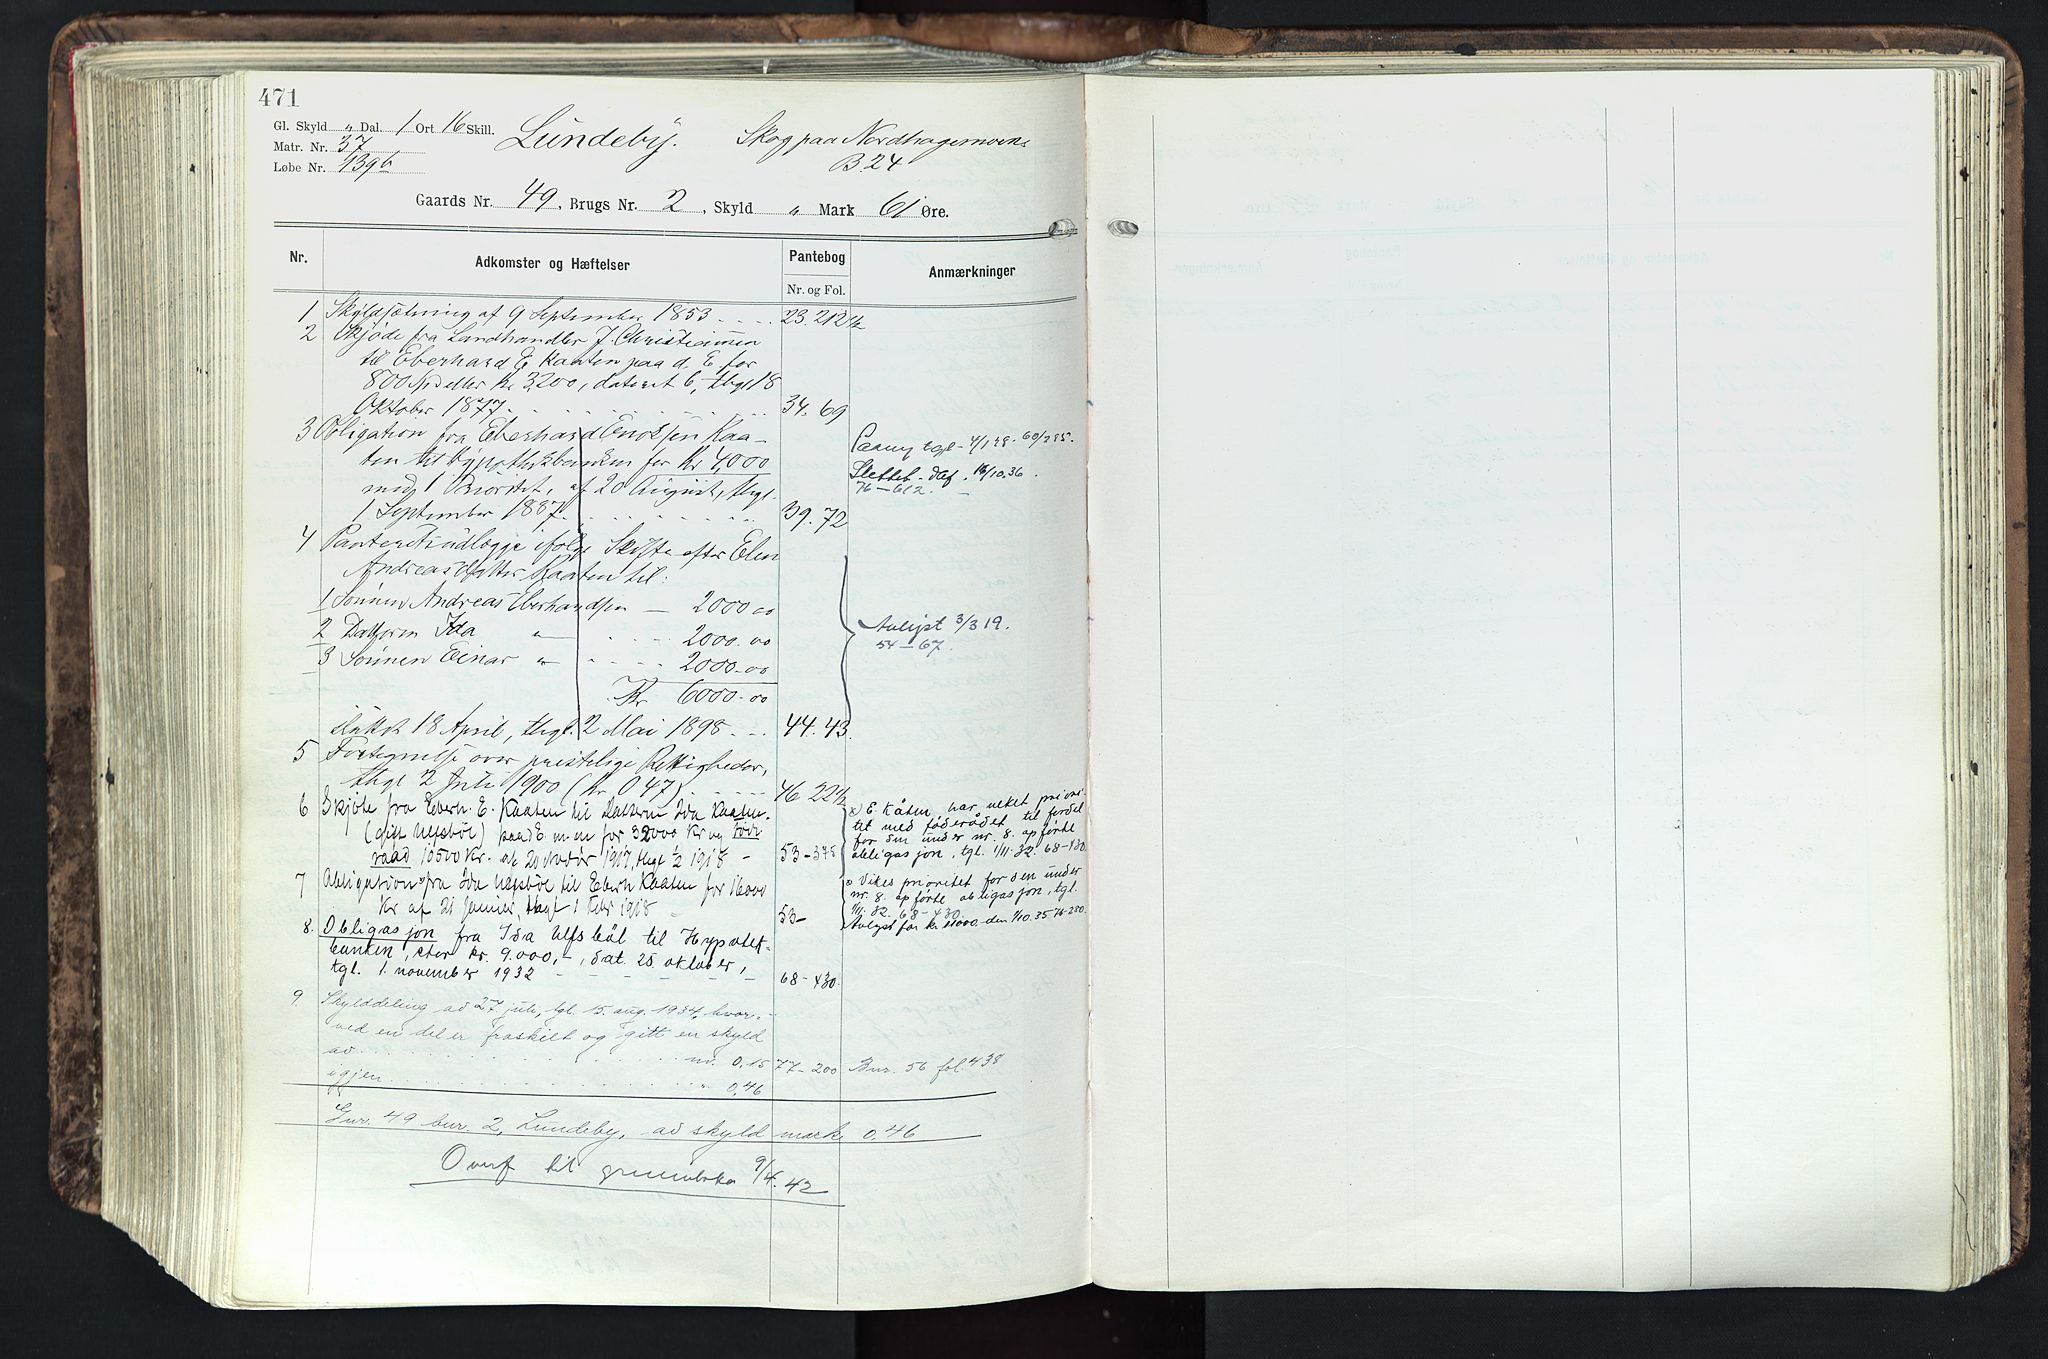 471
Gl. Skyld „ Dal. 1 Ort 16 Skill. Lundeby. Skog paa Nordhagemoen
Matr. Nr. 37 B. 24
Løbe Nr. 139b
Gaards Nr. 49, Brugs Nr. 2, Skyld „ Mark 61 Øre.
Nr. Adkomster og Hæftelser Pantebog Anmærkninger
Nr. og Fol.
1 Skyldsætning af 9 September 1853 23. 212½
2 Skjøde fra Landhandler J. Christiansen
til Eberhard E. Kaaten paa d. E. for
800 Spd eller Kr 3,200, dateret 6, thgl 18
Oktober 1877. 34. 69
3 Obligation fra Eberhard Enoksen Kaa-
ten til Hypothekbanken for Kr 4,000
mod 1 Prioritet, af 20 August, thgl.
1 September 1887. 39. 72
Paany tgl. 4/1 28. 60/285.
Slettet. Def. 16/10.36.
76-612.
4 Panteretsudlægge ifølge Skifte efter Elen
Andreasdatter Kaaten til:
1 Sønnen Andreas Eberhardsen — 2000.00
2 Datteren Ida „ 2000.00
3 Sønnen Einar „ 2000.00
Kr 6000.00
sluttet 18 April, thgl. 2 Mai 1898 44. 43.
Avlyst 3/3 19.
54-67.
5 Fortegnelse over tinglige Rettigheder,
thgl 2 Juli 1900 (Kr. 0 47) 46 22½
6 Skjøte fra Eberh. E. Kaaten til Datteren Ida Kaaten
(gift Ulfsbøl) paa d E m m for 32000 Kr og føde
raad 10500 Kr. af 20 Novbr 1917, thgl ½ 1918 53-378
x E. Kåten, har veket priori-
tet med føderådet til fordel
for den under nr 8. opførte
obligasjon, tgl. 1/11. 32. 68-430.
7 Obligation fra Ida Ulfsbøl til Eberh Kaaten for 16000
Kr af 21 Januar, thgl 1 Febr 1918 53-
x Vikes prioritet for den under
nr. 8. opførte obligasjon, tgl.
1/11. 32. 68-430.
Avlyst for kr 11000.- den 1/10.35 76-280.
8. Obligasjon fra Ida Ulfsbøl til Hypotek-
banken, stor kr. 9.000,-, dat. 25. oktober,
tgl. 1. november 1932 68-430.
9. Skylddeling av 27. juli, tgl. 15. aug. 1934, hvor-
ved en del er fraskilt og gitt en skyld
av mr. 0,15 77-200 Bnr. 56 fol. 438
igjen „ 0,46
Gnr. 49 bnr. 2, Lundeby, av skyld mark 0.46
Overf til grunnboka 9/4.42